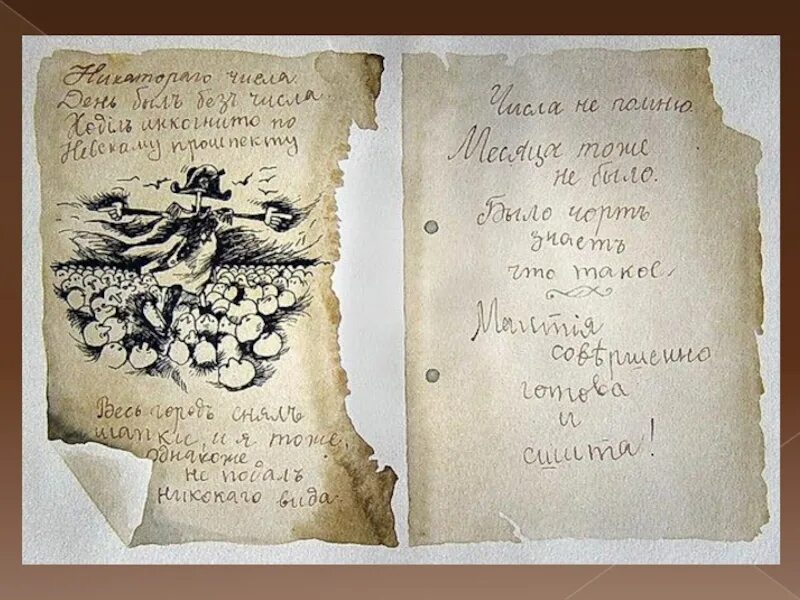 Никотораго числа.
День былъ безъ числа.
Ходилъ инкогнито по
Невскому прошпекту
Весь городъ снялъ
шапки, и я тоже,
однакоже
не подалъ
никокаго вида.
Числа не помню.
Месяца тоже
не было.
Было чортъ
знаетъ
что такое.
Мантія
совѣршенно
готова
и
сшита!